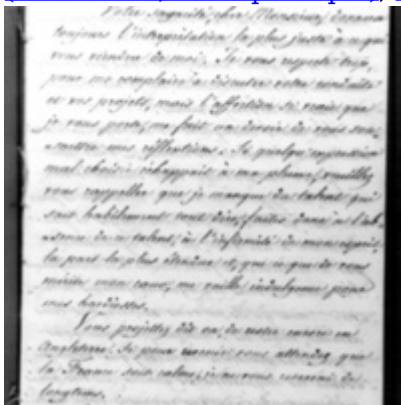 Votre sagacité, cher Monsieur, donnera
toujours l'interprétation la plus juste à ce qui
vous viendra de moi. Je vous respecte trop,
pour me complaire à discuter votre conduite
et vos projets, mais l'affection si vraie que
je vous porte, me fait un devoir de vous sou-
mettre mes réflections. Si quelque expression
mal choisie échappait à ma plume, veuillez
vous rappeller que je manque du talent qui
sait habilement tout dire, faites donc à l'ab-
sence de ce talent, à l'infirmité de mon esprit,
la part la plus étendue et, que ce que de vous
mérite mon cœur, me vaille indulgence pour
mes hardiesses.
Vous projettez dit on, de rester encore en
Angleterre. Si pour revenir vous attendez que
la France soit calme, je ne vous reverrai de
longtems.